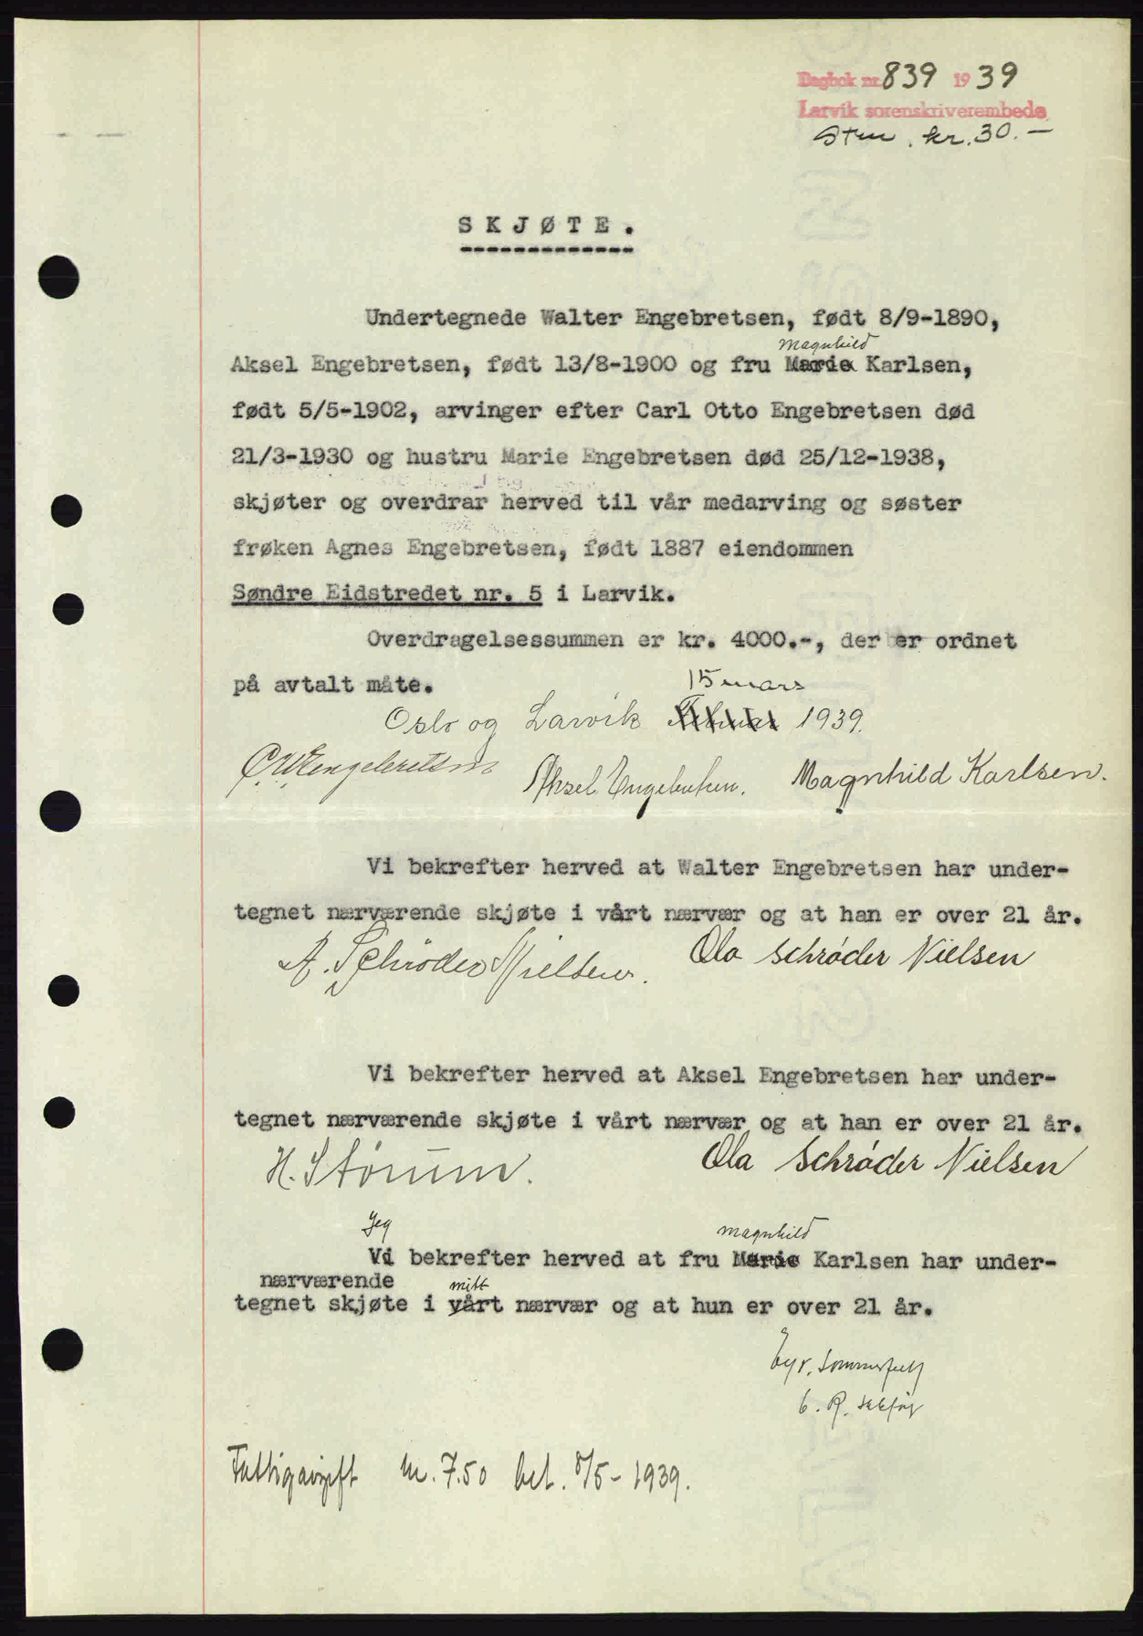 Dagbok nr. 839 1939
Larvik sorenskriverembede
kr. 30.-
SKJØTE.
Undertegnede Walter Engebretsen, født 8/9-1890,
Magnhild
Aksel Engebretsen, født 13/8-1900 og fru Marie Karlsen,
født 5/5-1902, arvinger efter Carl Otto Engebretsen død
21/3-1930 og hustru Marie Engebretsen død 25/12-1938,
skjøter og overdrar herved til vår medarving og søster
frøken Agnes Engebretsen, født 1887 eiendommen
Søndre Eidstredet nr. 5 i Larvik.
Overdragelsessummen er kr. 4000.-, der er ordnet
på avtalt måte.
15 mars
Oslo og Larvik Februar 1939.
C.W. Engebretsen Aksel Engebretsen. Magnhild Karlsen.
Vi bekrefter herved at Walter Engebretsen har under-
tegnet nærværende skjøte i vårt nærvær og at han er over 21 år.
A. Schrøder Nielsen. Ola Schrøder Nielsen
Vi bekrefter herved at Aksel Engebretsen har under-
tegnet nærværende skjøte i vårt nærvær og at han er over 21 år.
H. Størum. Ola Schrøder Nielsen
Jeg magnhild
Vi bekrefter herved at fru Marie Karlsen har under-
nærværende mitt
tegnet skjøte i vårt nærvær og at hun er over 21 år.
Sommerfelt
Fattigavgift kr. 7.50 bet. 8/5-1939.